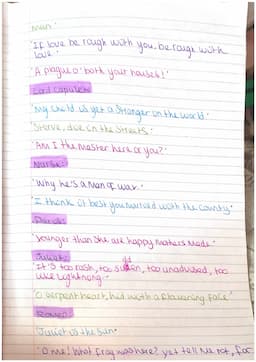 'If love be rough with you, be rough with
love.'
'A plague o' both your houses!'
Lord Capulet:
'My child is yet a stranger in the world'
'Starve, die in the streets.'
'Am I the master here or you?'
Nurse:
'Why he's a man of wax.'
'I think it best you married with the County'
Paris:
'Younger than she are happy mothers made.'
Juliet:
'It's too rash, too sudden, too unadvised, too
like lightning'
'O serpent heart, hid with a flowering face'
Romeo:
'Juliet is the sun'
'O me! What fray was here? yet tell me not, for